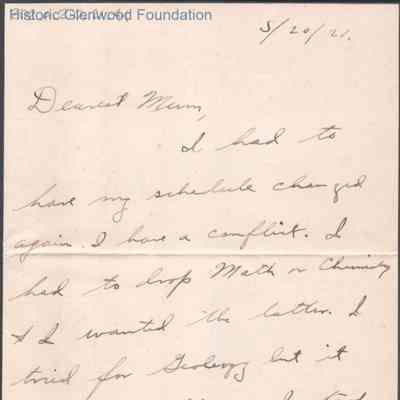 Historic Glenwood Foundation
5/20/21.
Dearest Mum,
I had to
have my schedule changed
again. I have a conflict. I
had to drop Math or Chemistry
& I wanted the latter. I
tried for Geology but it